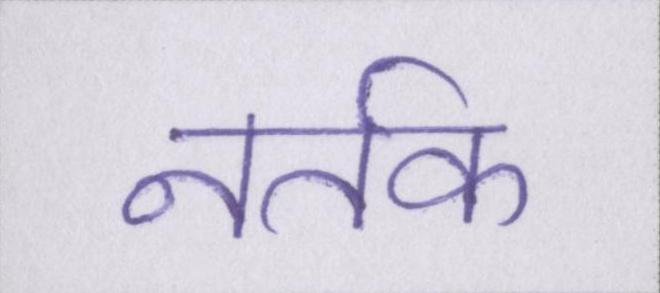 नर्तक